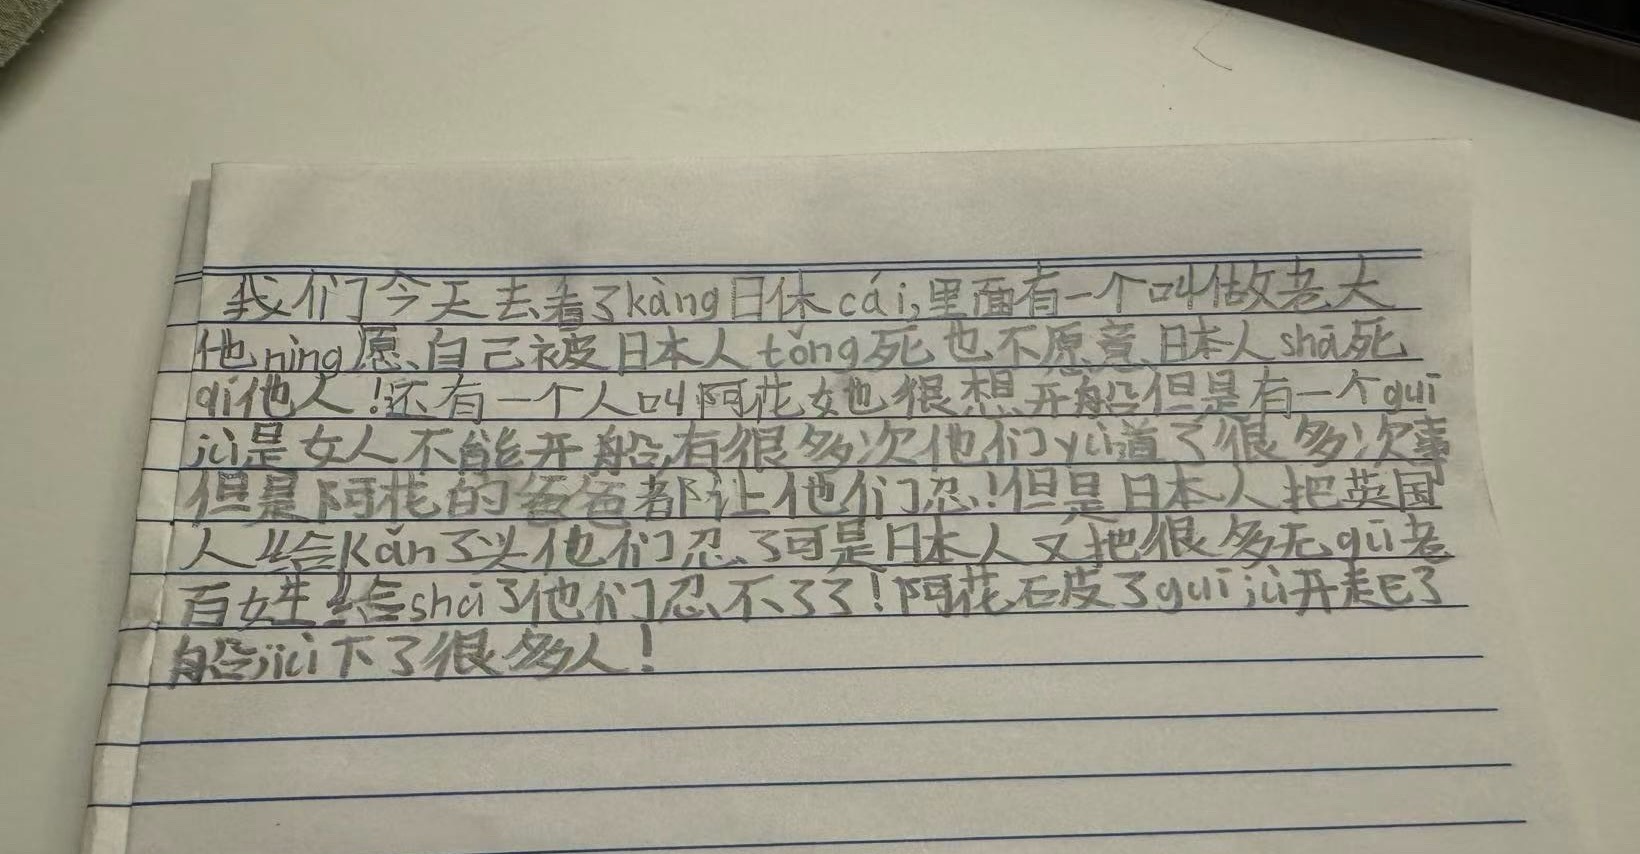 我们今天去看了kàng日休cái,里面有一个叫做老大
他nìng愿自己被日本人tǒng死也不愿意日本人shā死
qí他人!还有一个人叫阿花她也很想开船但是有一个guī
jù是女人不能开船,有很多次他们yù道了很多次事
但是阿花的爸爸都让他们忍!但是日本人把英国
人给kǎn了头他们忍了可是日本人又把很多无gū老
百姓给shā了他们忍不了了!阿花破了guī jù开起了
船,jiù下了很多人!